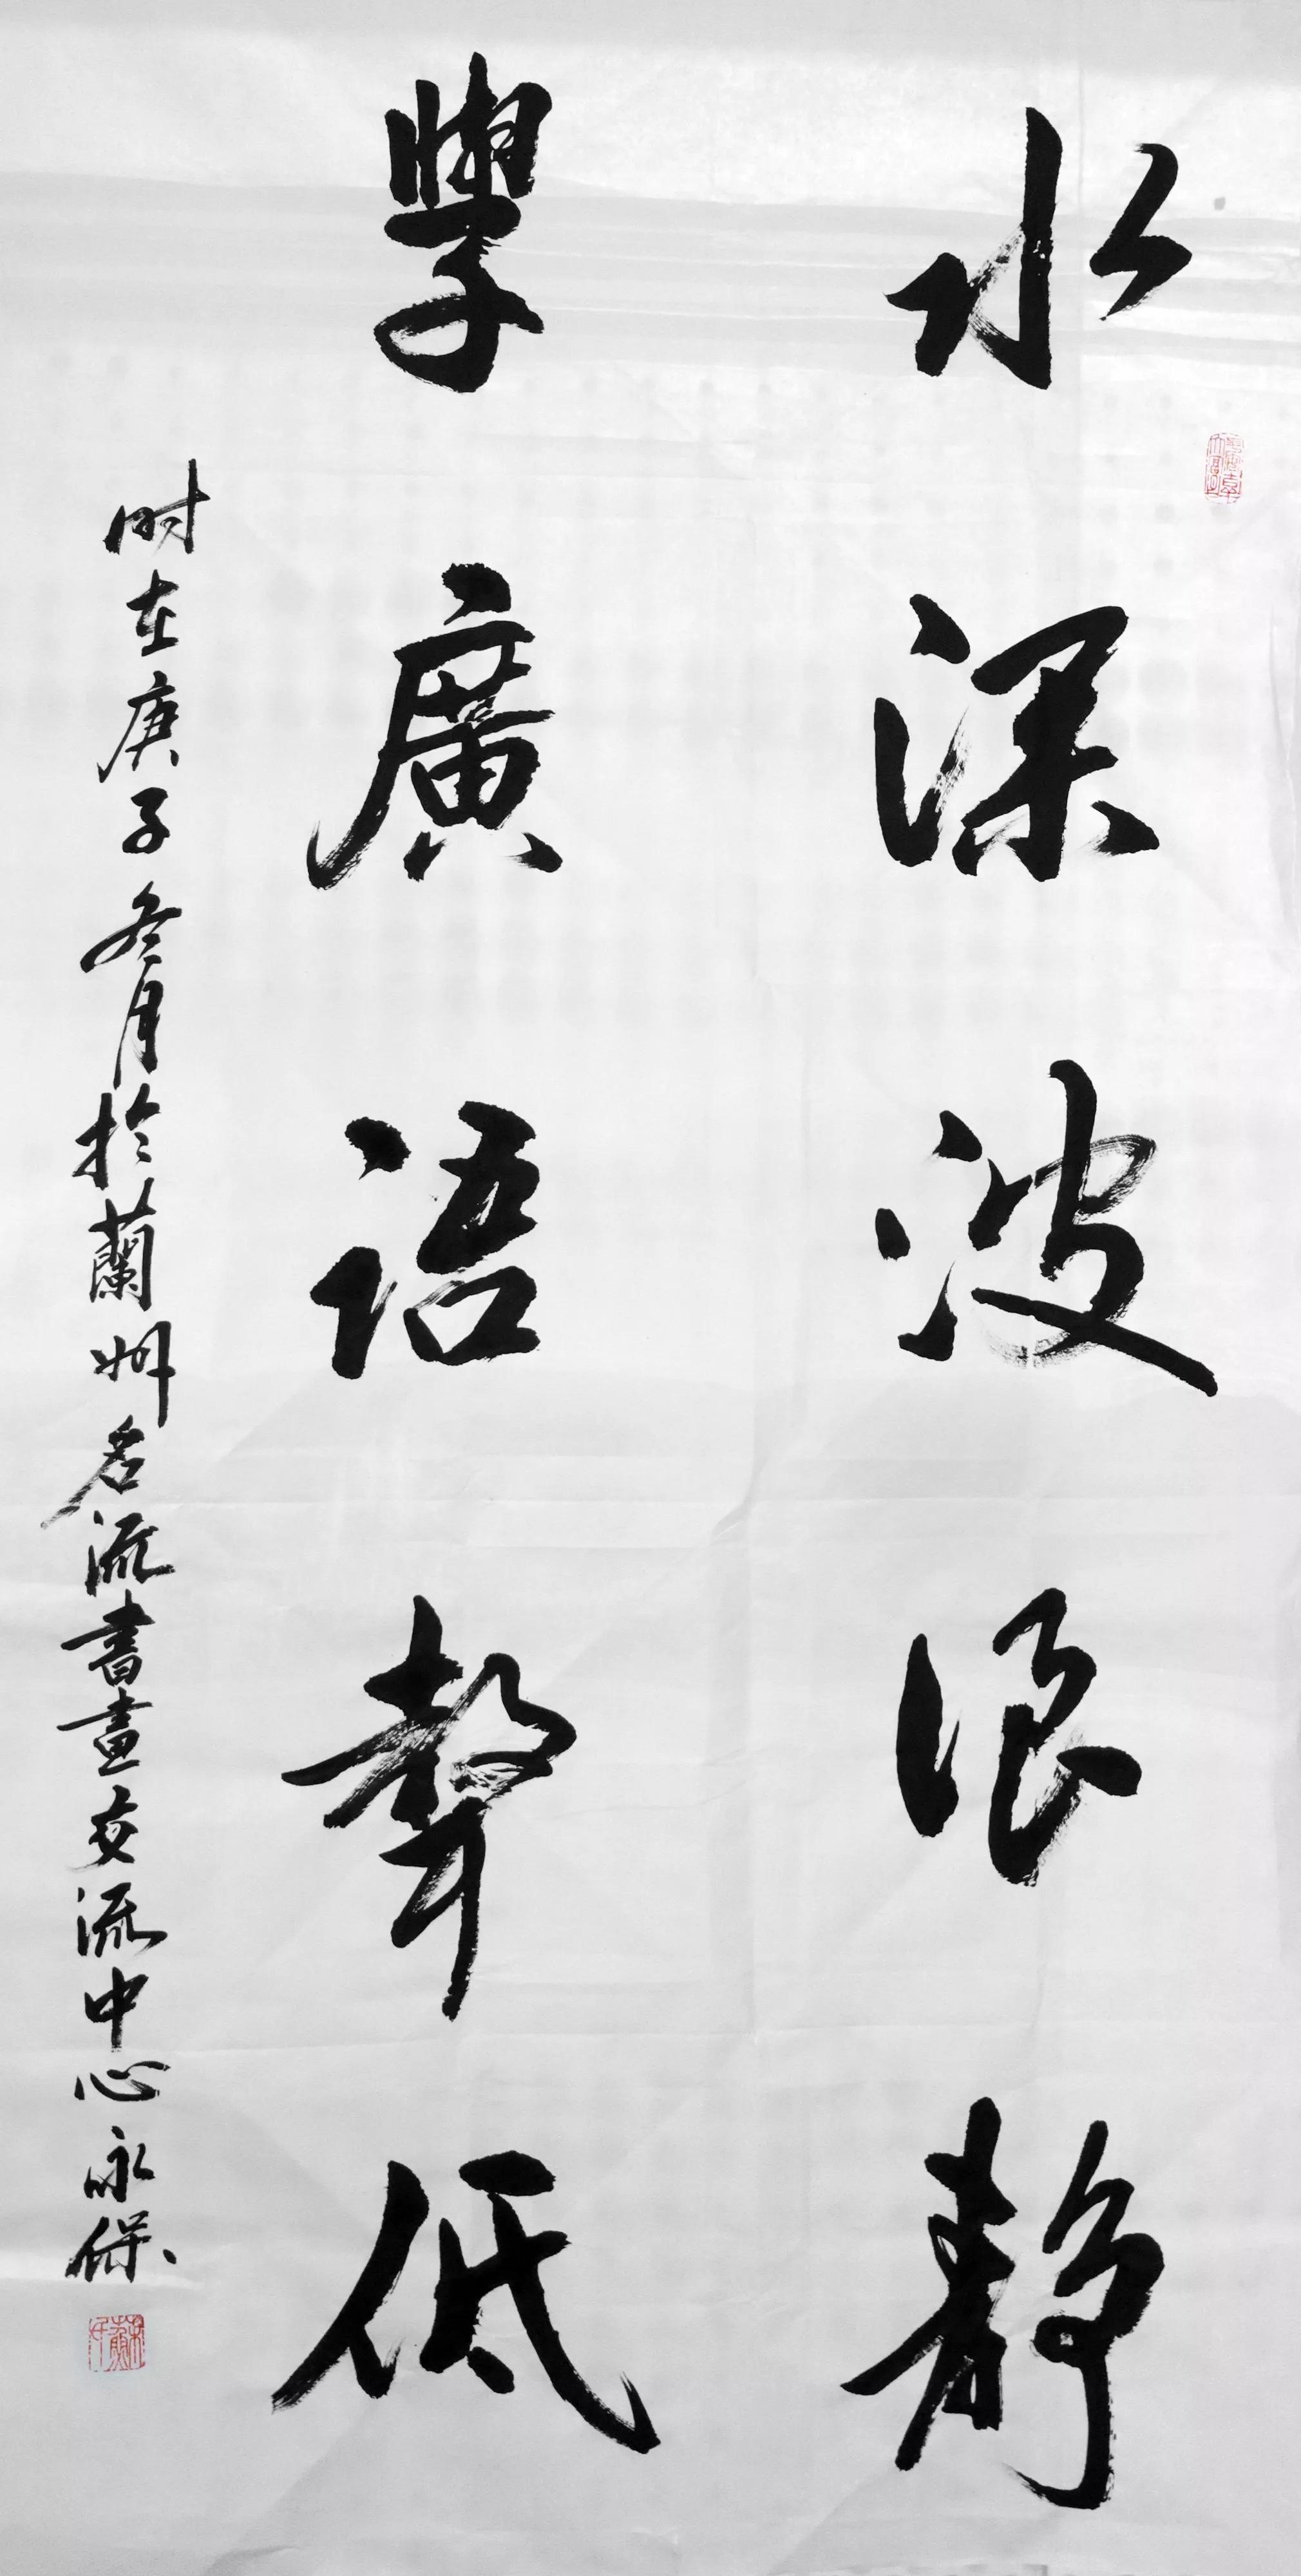 水深波浪静
學廣语聲低
时在庚子冬月於蘭州名流書畫交流中心永保